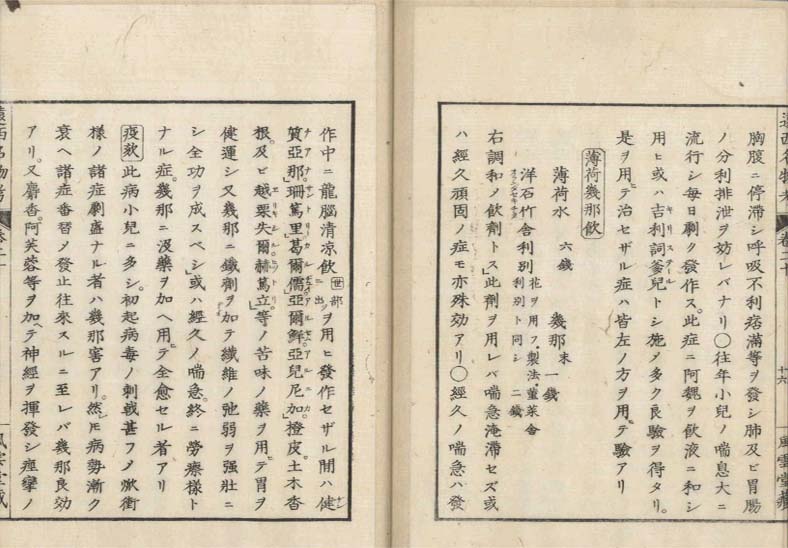 胸腹ニ停滞シ呼吸不利痞満等ヲ發シ肺及ビ胃腸
ノ分利排泄ヲ妨レバナリ〇往年小兒ノ喘息大ニ
流行シ毎日劇ク發作ス。此症ニ阿魏ヲ飲液ニ和シ
用ヒ或ハ吉利詞釜兒トシ施メ多ク良驗ヲ得タリ。
是ヲ用テ治セザル症ハ皆左ノ方ヲ用テ驗アリ
薄荷幾那飲
薄荷水 六錢 幾那末 一錢
洋石竹舎利別 花ヲ用フ・製法菫菜舎利別ト同シ 二錢
右調和メ飲劑トス」此劑ヲ用レバ喘急淹滞セズ或
ハ經久頑固ノ症モ亦殊効アリ〇經久ノ喘急ハ發
作中ニ龍腦清凉飲 世部ニ出 ヲ用ヒ發作セザル間ハ健
質亞那」珊篤里葛爾儒」亞爾鮮亞兒尼加」橙皮。土木香
根。及ビ越栗失爾赫篤立」等ノ苦味ノ藥ヲ用テ胃ヲ
健運シ又幾那ニ鐵劑ヲ加テ纖維ノ弛弱ヲ强壯ニ
シ全功ヲ成スベシ」或ハ經久ノ喘急。終ニ勞瘵様ト
ナル症。幾那ニ汲藥ヲ加ヘ用テ全愈セル者アリ
疫欬 此病小兒ニ多シ。初起病毒ノ刺戟甚フメ焮衝
様ノ諸症劇盛ナル者ハ幾那害アリ。然シモ病勢漸ク
衰ヘ諸症番替メ發止往來スルニ至レバ幾那良効
アリ。又麝香。阿芙蓉等ヲ加ヘテ神經ヲ揮發シ痙攣ノ
遠西名物考 卷二十 十六 風雲堂藏